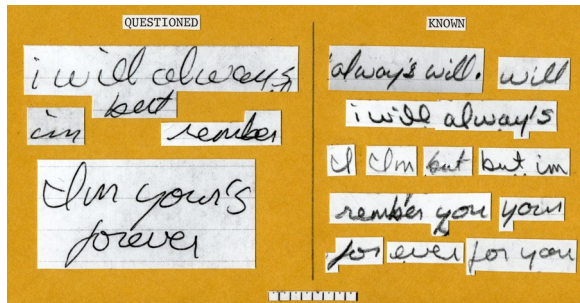 QUESTIONED
i will always
but
im rember
I'm your's
forever
KNOWN
always will. will
i will always
I I'm but but im
rember you your
for ever for you